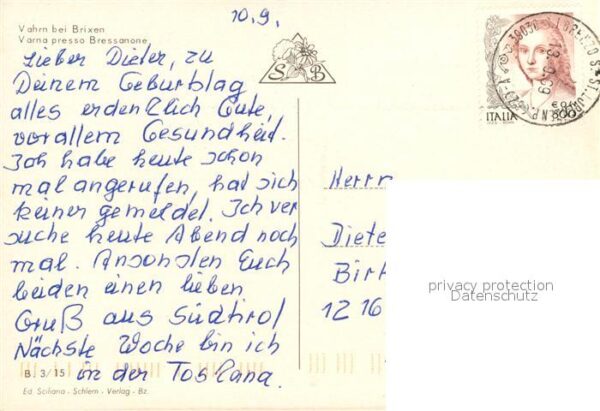 10.9.
Vahrn bei Brixen
Varna presso Bressanone
Lieber Dieter, zu
Deinem Geburtstag
alles erdenklich Gute,
vor allem Gesundheit.
Ich habe heute schon
mal angerufen, hat sich
keiner gemeldet. Ich ver
suche heute Abend noch
mal. Ansonsten Euch
beiden einen lieben
Gruß aus Südtirol
Nächste Woche bin ich
in der Toskana.
B. 3/15
Ed. Sciliana - Schlern - Verlag - Bz.
S B
ITALIA
800
39030
S. LORENZO
Herrn
Diete
Birk
12 16
privacy protection
Datenschutz